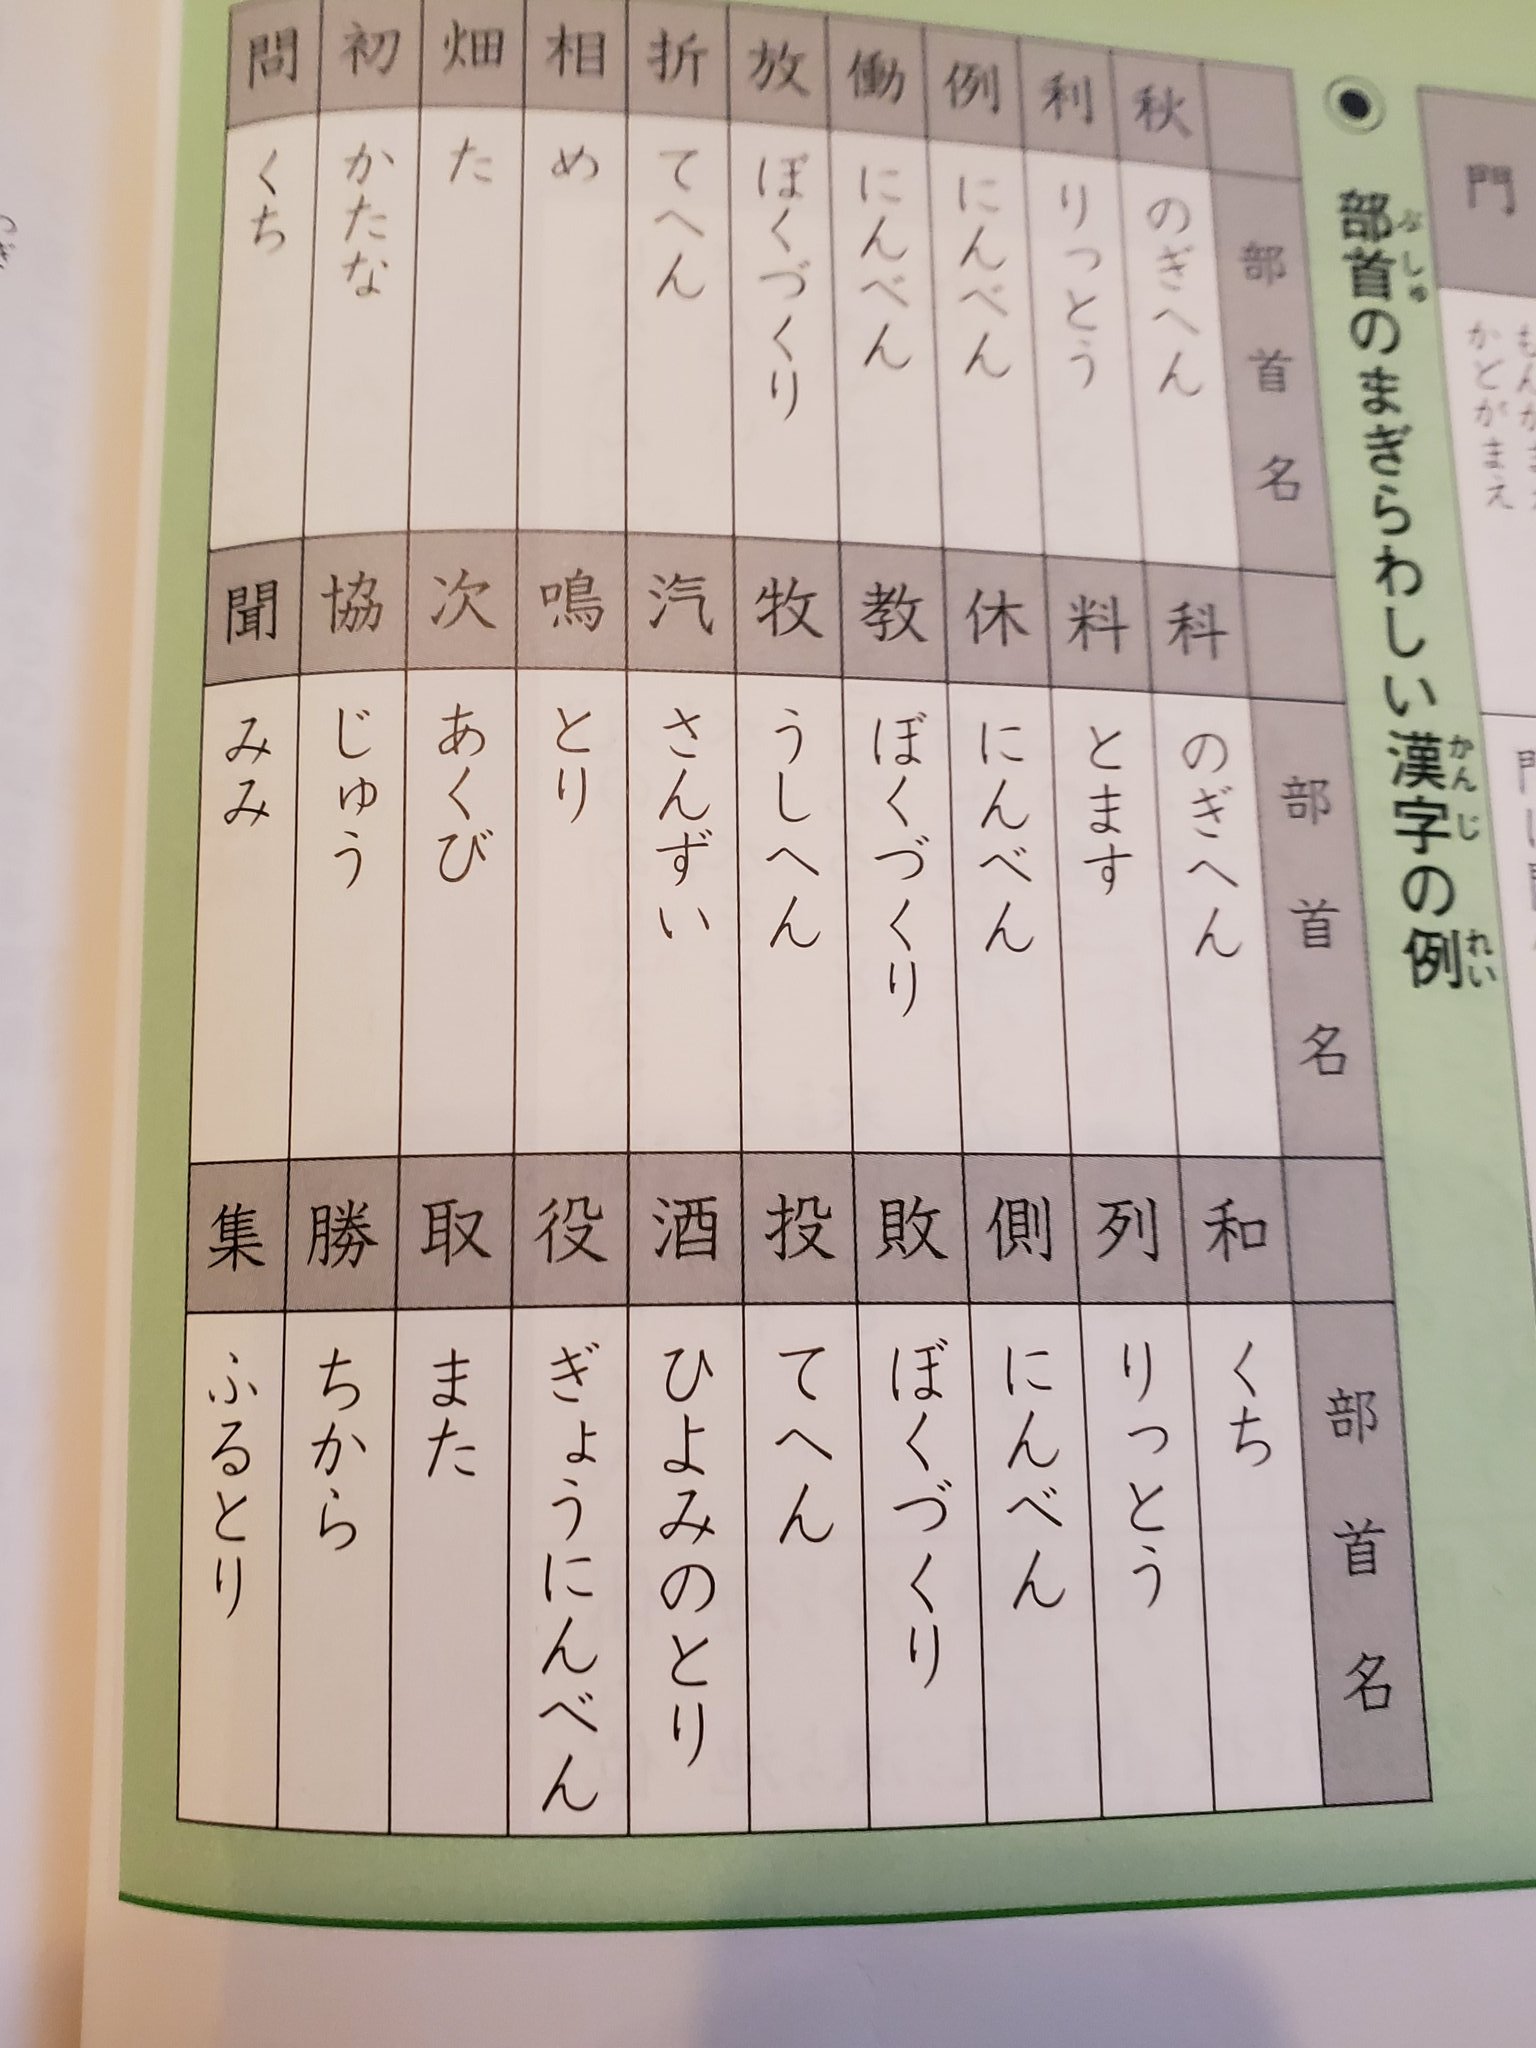 門
もんがまえ
かどがまえ
部首のまぎらわしい漢字の例
ぶしゅ
かんじ
れい
部首名
部首名
部首名
秋 のぎへん
科 のぎへん
和 くち
利 りっとう
料 とます
列 りっとう
例 にんべん
休 にんべん
側 にんべん
働 にんべん
教 ぼくづくり
敗 ぼくづくり
放 ぼくづくり
牧 うしへん
投 てへん
折 てへん
汽 さんずい
酒 ひよみのとり
相 め
鳴 とり
役 ぎょうにんべん
畑 た
次 あくび
取 また
初 かたな
協 じゅう
勝 ちから
問 くち
聞 みみ
集 ふるとり